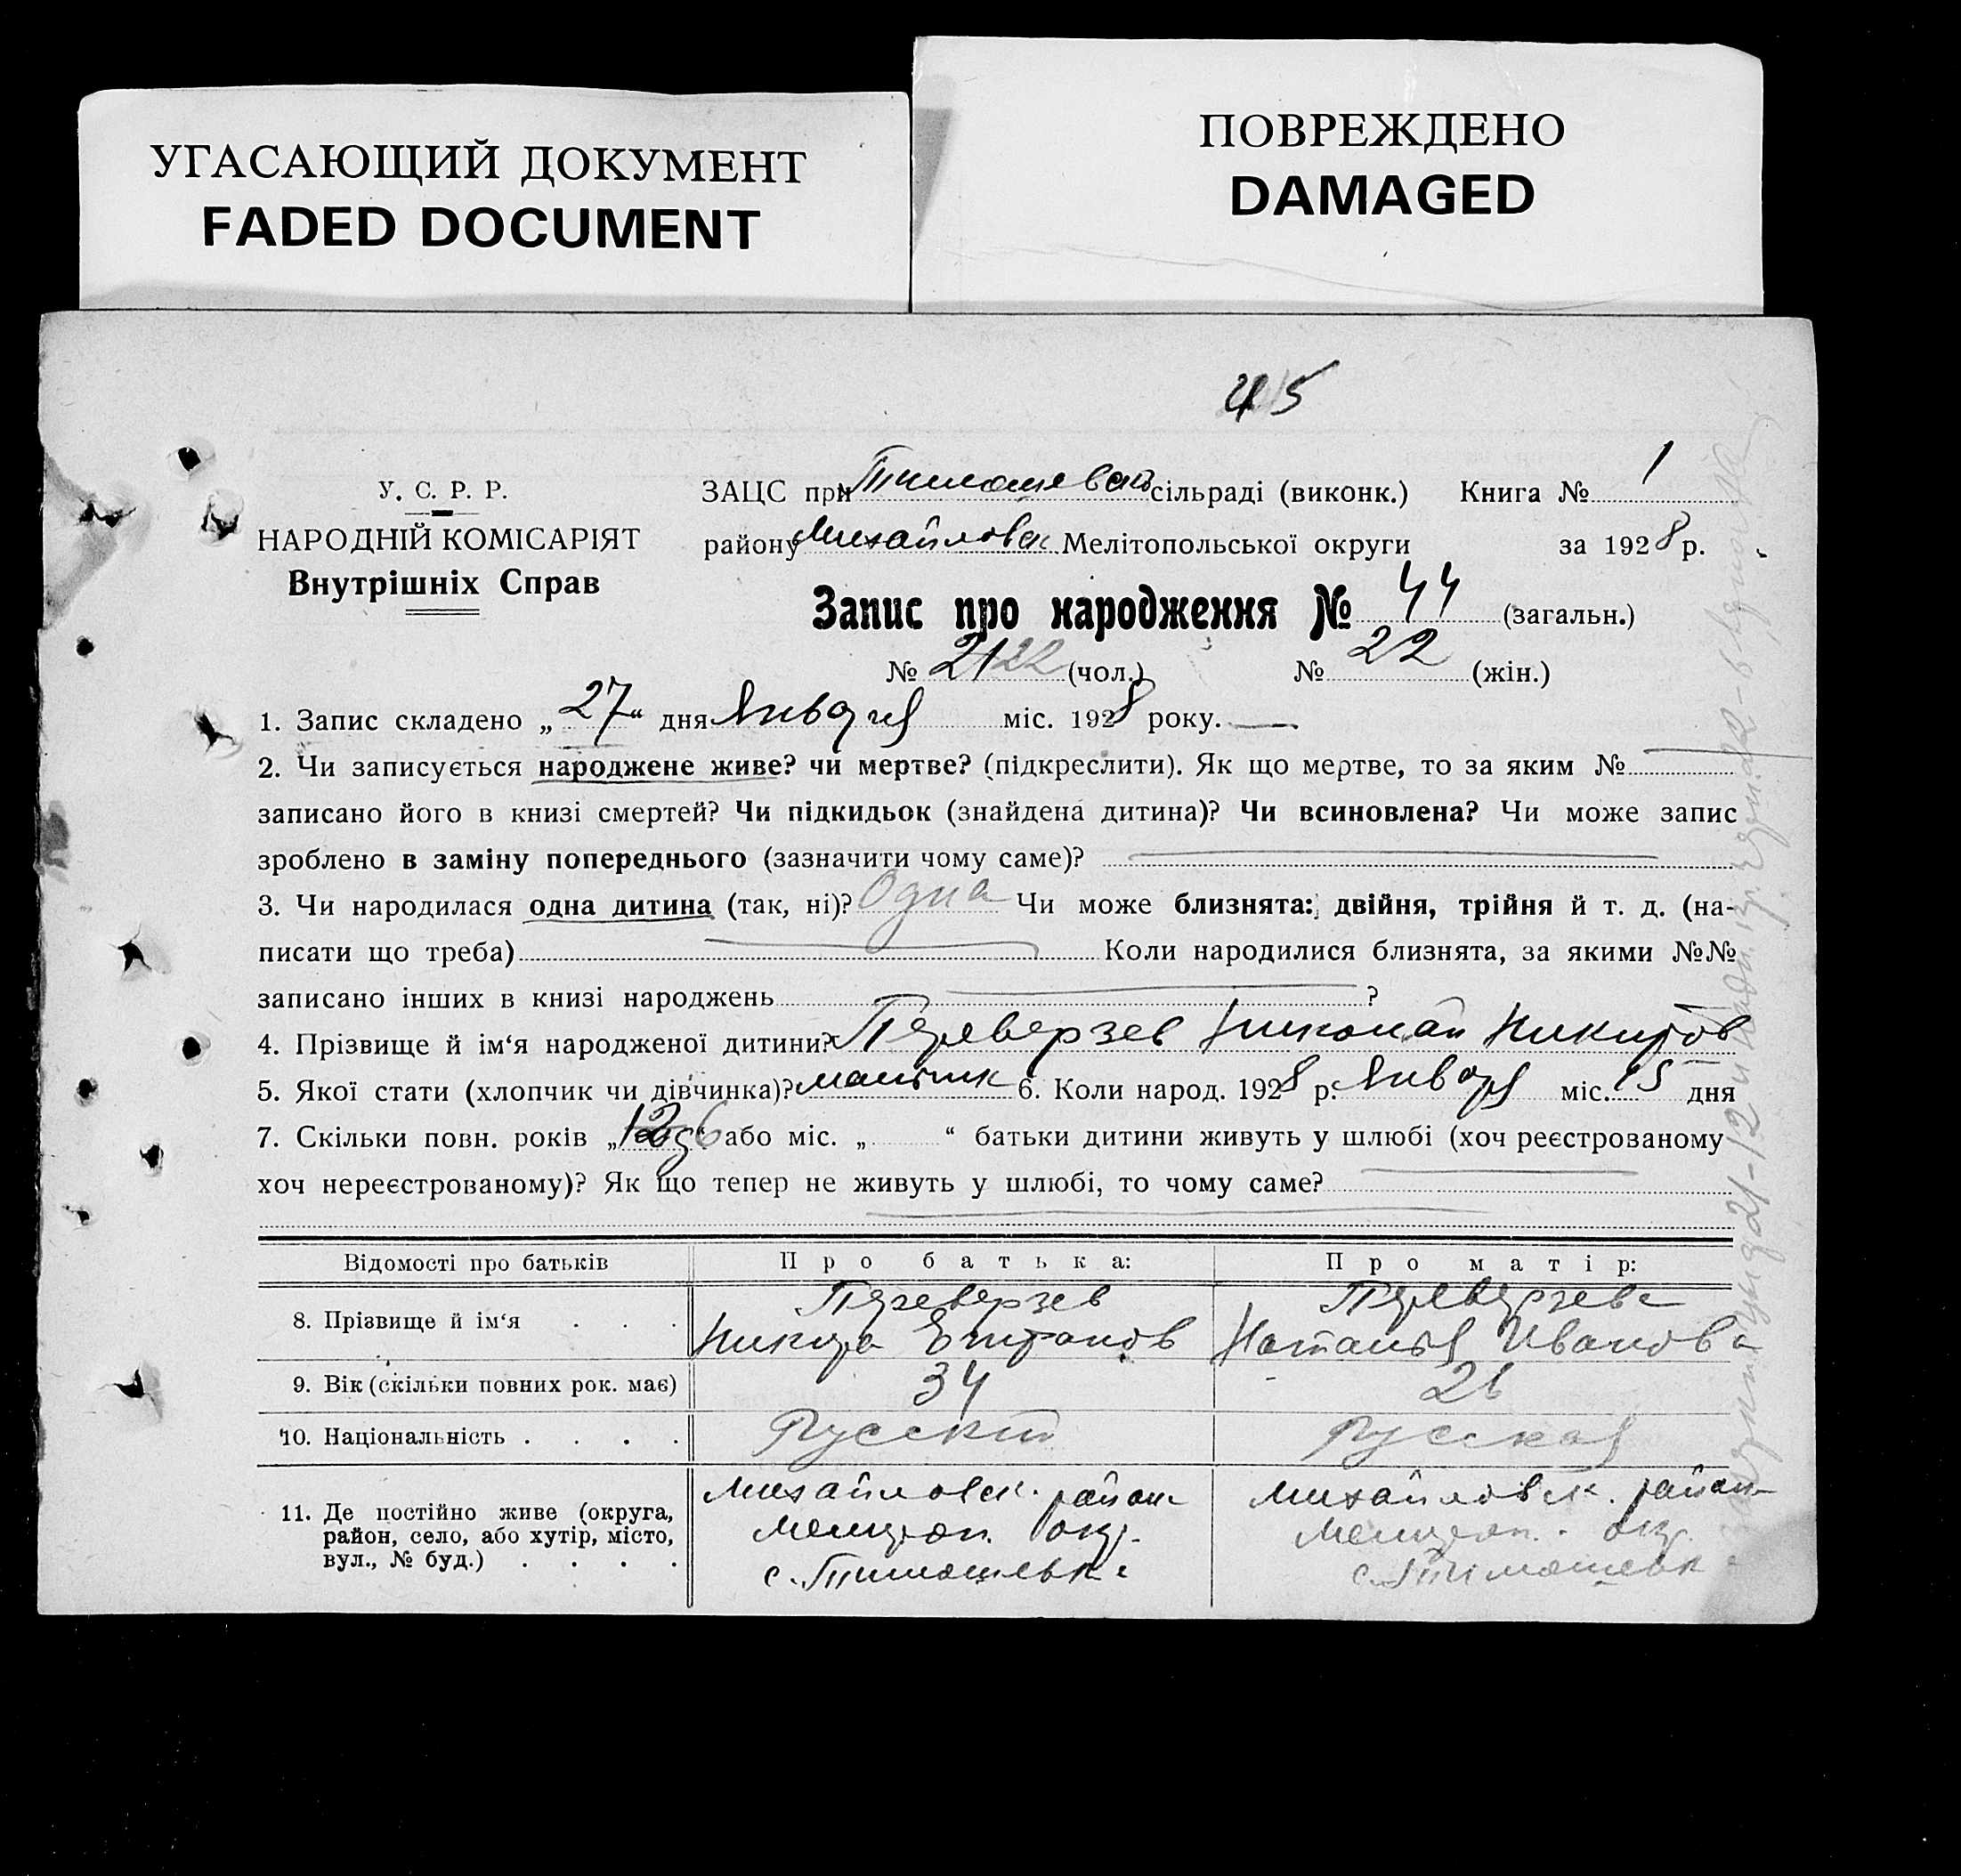 УГАСАЮЩИЙ ДОКУМЕНТ
FADED DOCUMENT
ПОВРЕЖДЕНО
DAMAGED
45
У. С. Р. Р.
НАРОДНІЙ КОМІСАРІЯТ
Внутрішніх Справ
ЗАЦС при Тимошевск сільраді (виконк.) Книга № 1
району Михайловск Мелітопольської округи за 1928 р.
Запис про народження № 44 (загальн.)
№ 21 22 (чол.) № 22 (жін.)
1. Запис складено „27“ дня Января міс. 1928 року.
2. Чи записується народжене живе? чи мертве? (підкреслити). Як що мертве, то за яким №
записано його в книзі смертей? Чи підкидьок (знайдена дитина)? Чи всиновлена? Чи може запис
зроблено в заміну попереднього (зазначити чому саме)?
3. Чи народилася одна дитина (так, ні)? Одна Чи може близнята: двійня, трійня й т. д. (на-
писати що треба) Коли народилися близнята, за якими №№
записано інших в книзі народжень ?
4. Прізвище й ім‘я народженої дитини? Переверзев Николай Никитов
5. Якої стати (хлопчик чи дівчинка)? мальчик 6. Коли народ. 1928 р. Января міс. 15 дня
7. Скільки повн. років „ “ або міс. „ “ батьки дитини живуть у шлюбі (хоч реєстрованому
хоч нереєстрованому)? Як що тепер не живуть у шлюбі, то чому саме?
Відомості про батьків Про батька: Про матір:
8. Прізвище й ім‘я . . . Переверзев Переверзева
Никита Наталья Иванова
9. Вік (скільки повних рок. має) 34 26
10. Національність . . . . Русский Русская
11. Де постійно живе (округа, район, село, або хутір, місто, вул., № буд.) . . . .
Михайловск. район Михайловск. район
Мелитоп. окр. Мелитоп. окр.
с. Тимошевк с. Тимошевк